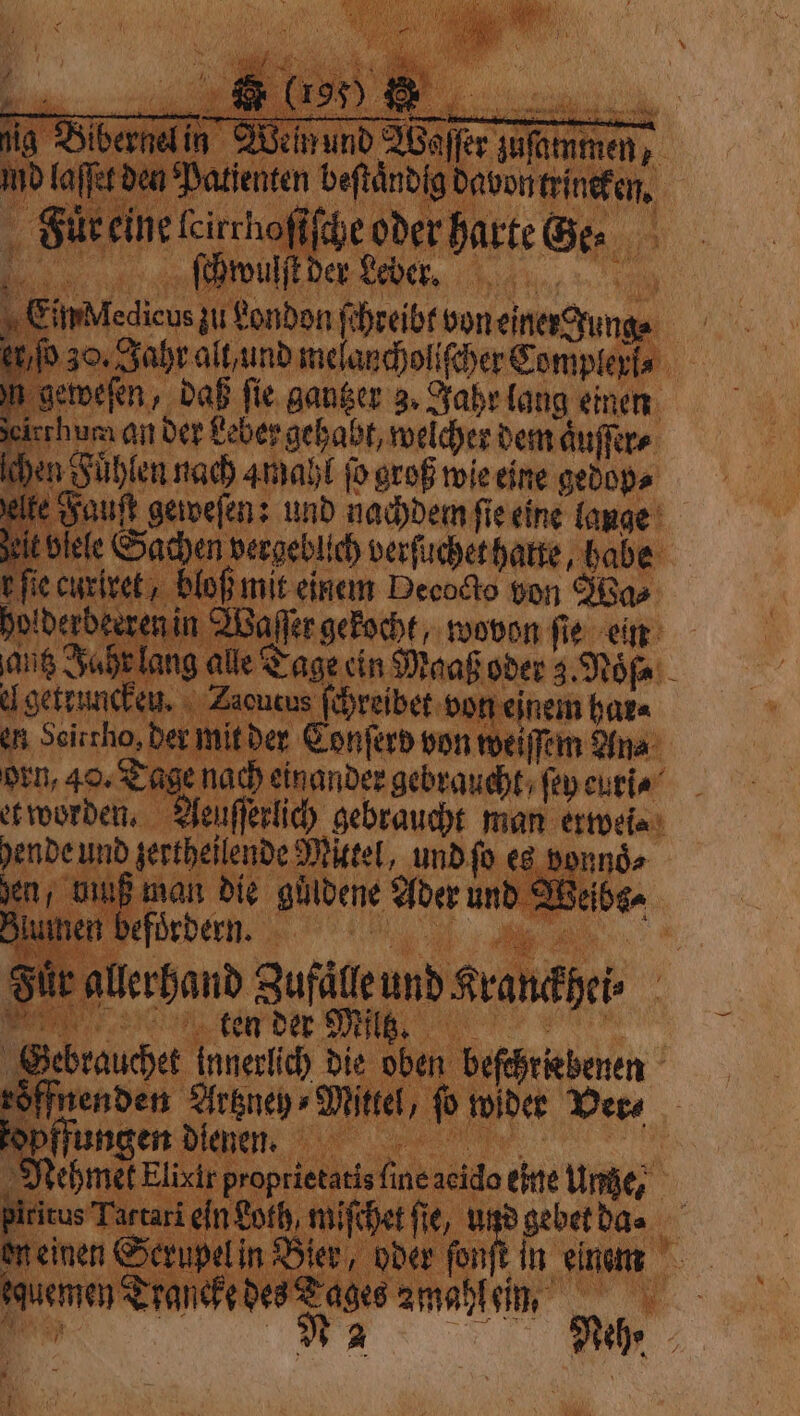 (195)
nig Bibernel in Wein und Waſſer zuſammen,
und laſſet den Patienten beſtåndig davon trincken.
Fůr eine ſcirrhoſiſche oder harte Ge⸗
ſchwulſt der Leber.
Ein Medicus zu London ſchreibt von einer Jung⸗
er, ſo 30. Jahr alt, und melancholiſcher Complexi⸗
n geweſen, daß ſie gantzer 3. Jahr lang einen
Scirrhum an der Leber gehabt, welcher dem åuſſer⸗
lchen Fůhlen nach 4mahl ſo groß wie eine gedop⸗
elte Fauſt geweſen: und nachdem ſie eine lange
Zeit viele Sachen vergeblich verſuchet hatte, habe
r ſie curiret, bloß mit einem Decocto von Wa⸗
holderbeeren in Waſſer gekocht, wovon ſie ein
antz Jahr lang alle Tage ein Maaß oder 3. Nőſ⸗
el getruncken. Zacutus ſchreibet von einem har⸗
en Scirrho, der mit der Conſerv von weiſſem An⸗
orn, 40. Tage nach einander gebraucht, ſey curi⸗
et worden. Aeuſſerlich gebraucht man erwei⸗
hende und zertheilende Mittel, und ſo es vonnő⸗
en, muß man die gůldene Ader und Weibs⸗
Blumen befőrdern.
Fůr allerhand Zufålle und Kranckhei⸗
ten der Miltz.
Gebrauchet innerlich die oben beſchriebenen
rőffnenden Artzney⸗Mittel, ſo wider Ver⸗
kopffungen dienen.
Nehmet Elixir proprietatis ſine acido eine Untze,
piritus Tartari ein Loth, miſchet ſie, und gebet da⸗
on einen Scrupel in Bier, oder ſonſt in einem
equemen Trancke des Tages 2mahl ein.
N 2 Neh⸗